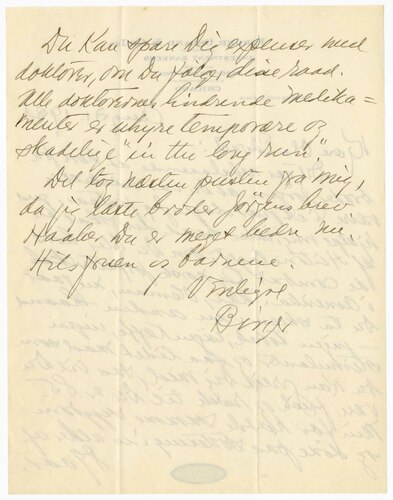 Du Kan spare Dig expenser med
doktorer, om Du følger disse raad.
Alle doktorernes lindrende medika=
menter er uhyre temporære og
skadelige "in the long run".
Det tog næsten pusten fra mig,
da jeg læste broder Jörgens brev
Haaber Du er meget bedre nu.
Hils fruen og børnene.
Venligst
Birger